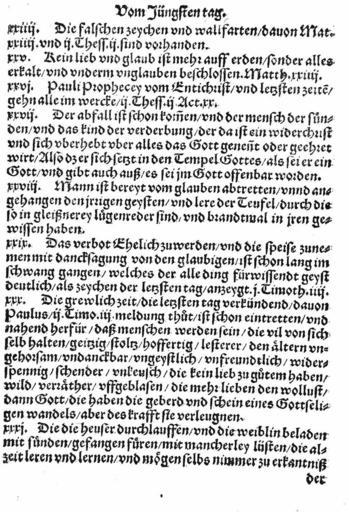 Vom Jüngsten tag.
xxiiij. Die falschen zeychen vnd walfarten/dauon Mat.
xxiiij.vnd ij.Thess.ij.sind vorhanden.
xxv. Kein lieb vnd glaub ist mehr auff erden/sonder alles
erkalt/vnd vnderm vnglauben beschlossen.Matth.xxiiij.
xxvj. Pauli Prophecey vom Entichrist/vnd letzsten zeitē/
gehn alle im wercke/ij.Thess.ij.Act.xx.
xxvij. Der abfall ist schon kom̄en/vnd der mensch der sün-
den/vnd das kind der verderbung/der da ist ein widerchrist
vnd sich vberhebt vber alles das Gott genent oder geehret
wirt/Also dz er sich setzt in den Tempel Gottes/als sei er ein
Gott/vnd gibt auch auß/es sei jm Gott offenbar worden.
xxviij. Mann ist bereyt vom glauben abtretten/vnnd an-
gehangen den jrrigen geysten/vnd lere der Teufel/durch die
so in gleißnerey lügenreder sind/vnd brandtmal in jren ge-
wissen haben.
xxix. Das verbot Ehelich zuwerden/vnd die speise zune-
men mit dancksagung von den glaubigen/ist schon lang im
schwang gangen/welches der alle ding fürwissendt geyst
deutlich/als zeychen der letzsten tag/anzeygt.j.Timoth.iiij.
xxx. Die grewlich zeit/die letzsten tag verkündend/dauon
Paulus/ij.Timo.iij.meldung thůt/ist schon eintretten/vnd
nahend herfür/daß menschen werden sein/die vil von sich
selb halten/geitzig/stoltz/hoffertig/lesterer/den ältern vn-
gehorsam/vndanckbar/vngeystlich/vnfreundtlich/wider-
spennig/schender/vnkeusch/die kein lieb zu gůtem haben/
wild/verräther/vffgeblasen/die mehr lieben den wollust/
dann Gott/die haben die geberd vnd schein eines Gottseli-
gen wandels/aber des krafft sie verleugnen.
xxxj. Die die heuser durchlauffen/vnd die weiblin beladen
mit sünden/gefangen füren/mit mancherley lüsten/die al-
zeit leren vnd lernen/vnd mögen selbs nimmer zu erkantniß
der